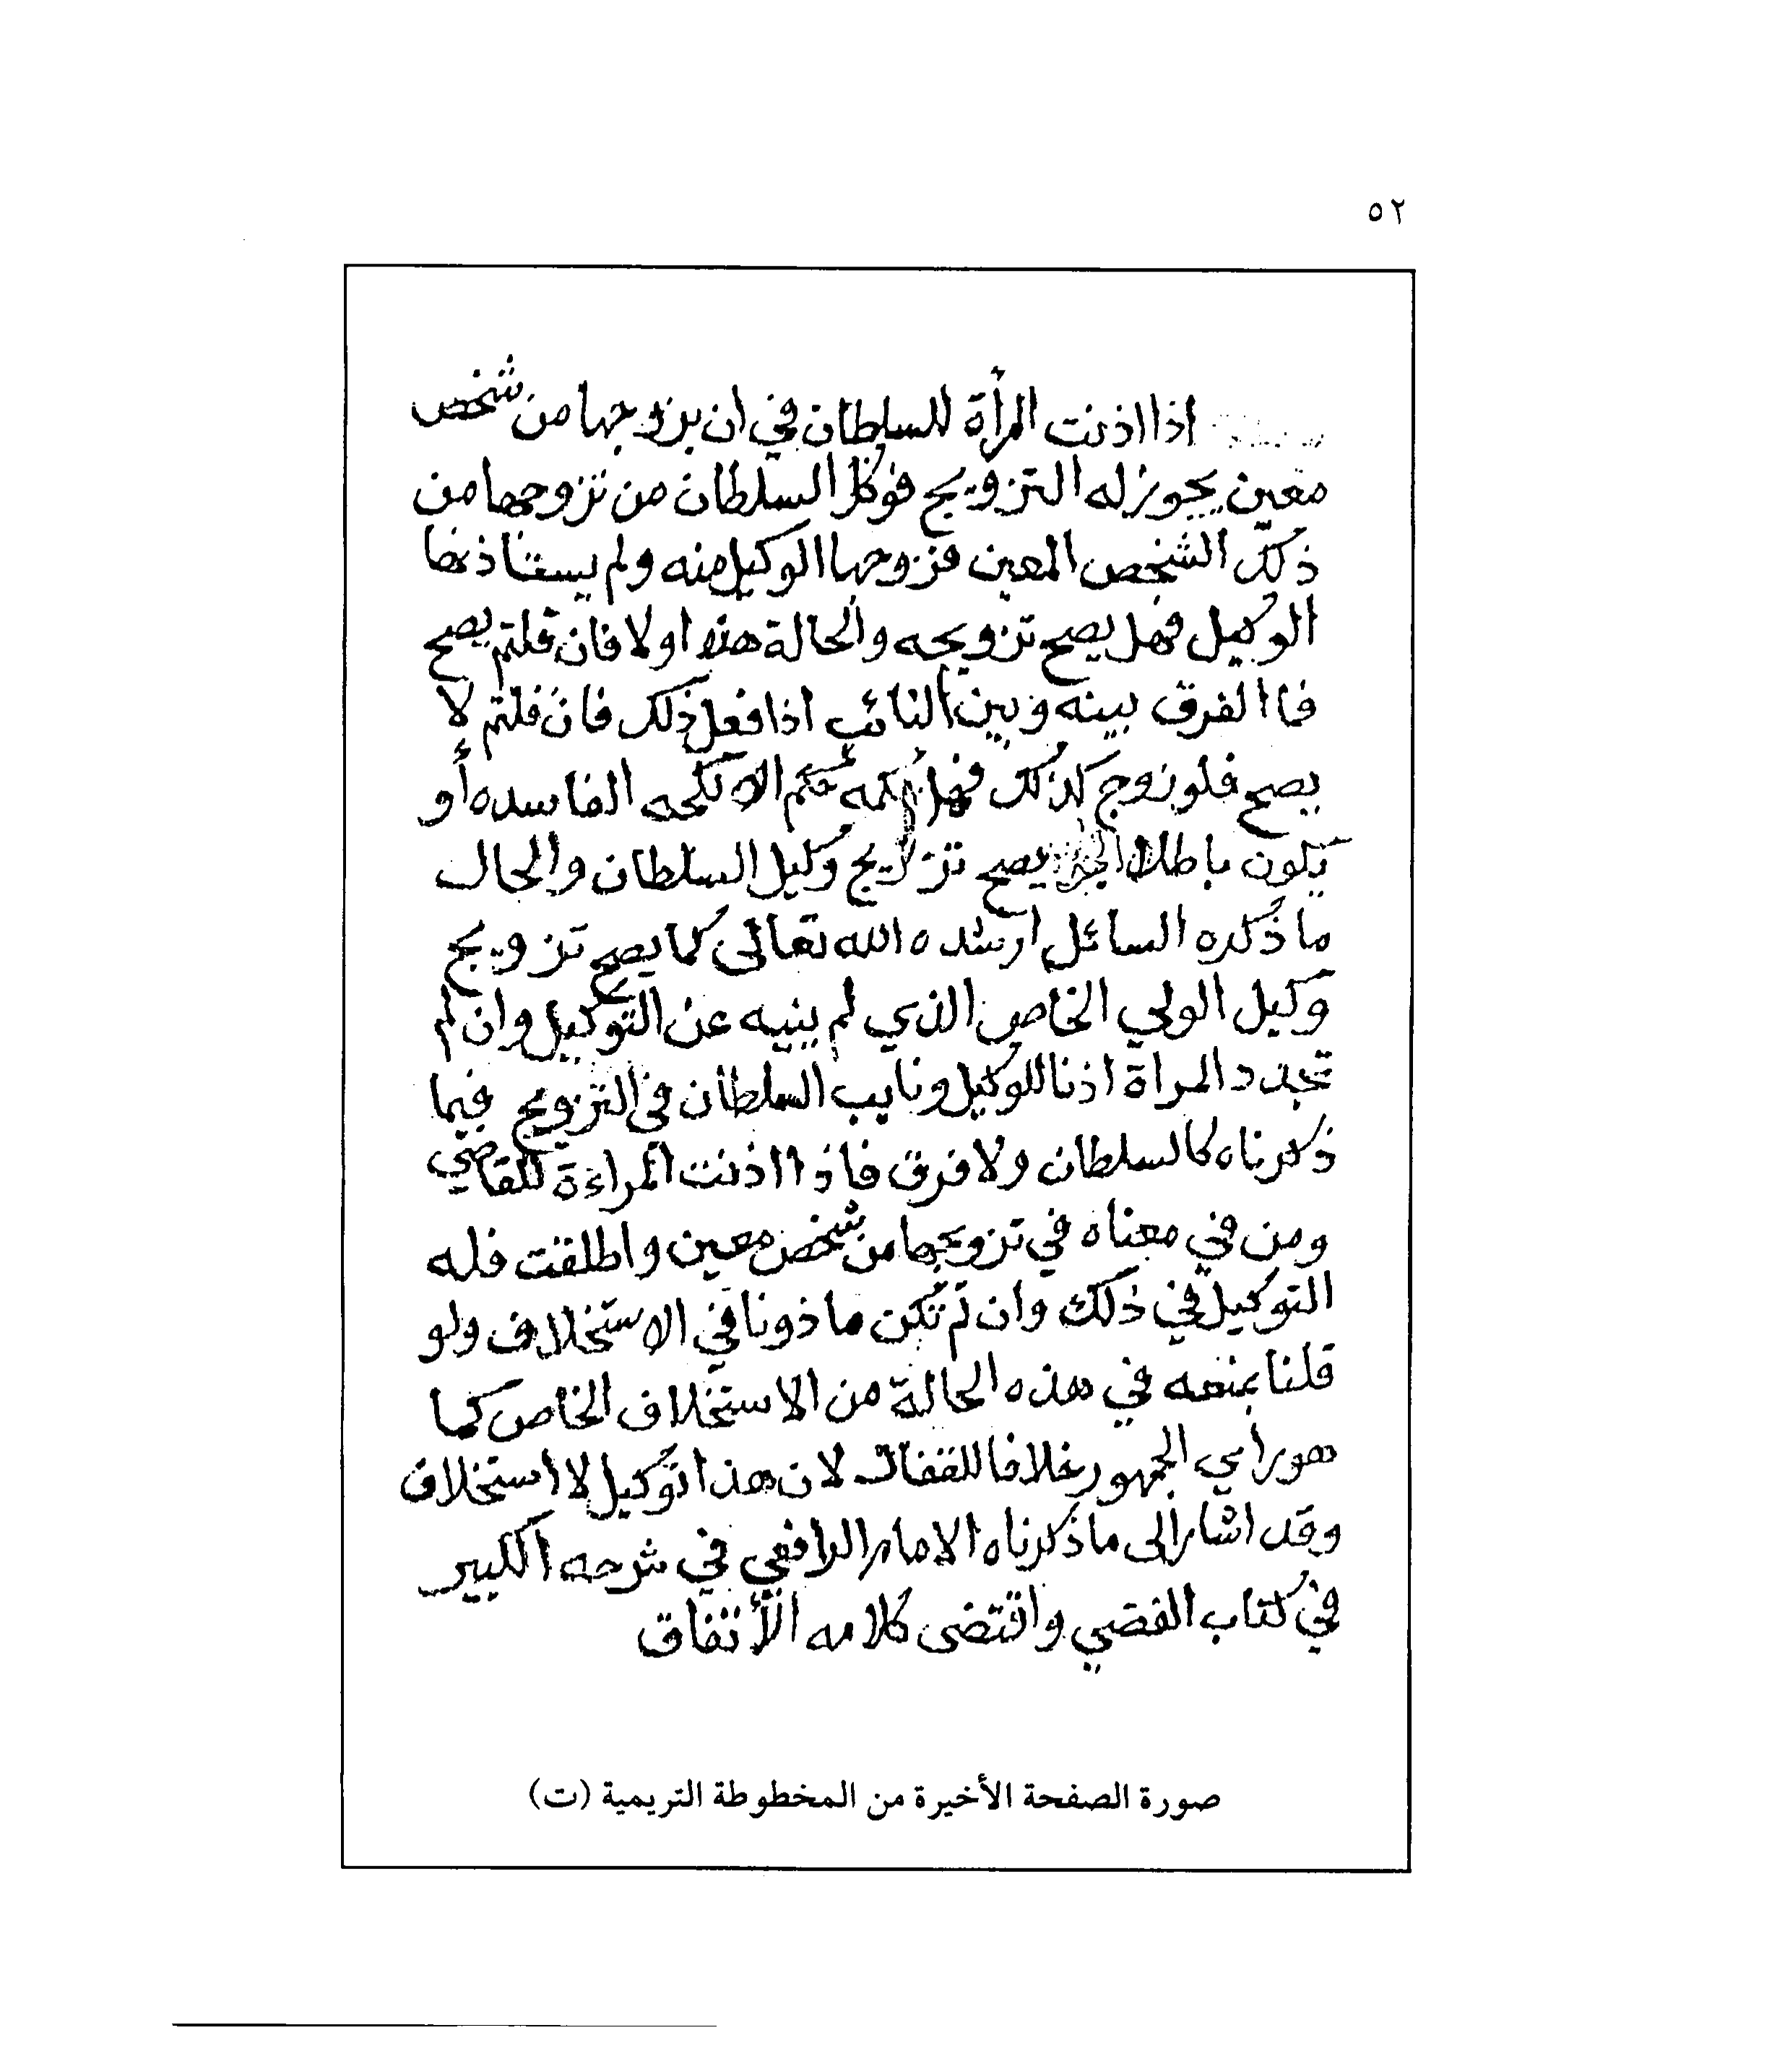 ٥٢
اذا اذنت المرأة للسلطان في ان يزوجها من شخص
معين يجوز له التزويج فوكل السلطان من تزوجها من
ذلك الشخص المعين فزوجها الوكيل منه ولم يستاذنها
الوكيل فهل يصح تزويجه والحالة هذه او لا فان قلتم يصح
فما الفرق بينه وبين النائب اذا فعل ذلك فان قلتم لا
يصح فلو زوج كذلك فهل حكمه حكم الانكحه الفاسده أو
يكون باطلا الجواب يصح تزويج وكيل السلطان والحال
ما ذكره السائل ارشده الله تعالى كما يصح تزويج
وكيل الولي الخاص الذي لم ينيه عن التوكيل وان لم
تجدد المراة اذنا للوكيل ونايب السلطان في التزويج فيما
ذكرناه كالسلطان ولا فرق فاذا اذنت المراءة للقاضي
ومن في معناه في تزويجها من شخص معين واطلقت فله
التوكيل في ذلك وان لم تكن ماذونا في الاستخلاف ولو
قلنا بمنعه في هذه الحالة من الاستخلاف الخاص كما
هو راي الجمهور خلافا للقفال لان هذا توكيل لا استخلاف
وقد اشار الى ما ذكرناه الامام الرافعي في شرحه الكبير
في كتاب القضي واقتضى كلامه الأتفاق
صورة الصفحة الأخيرة من المخطوطة التريمية (ت)